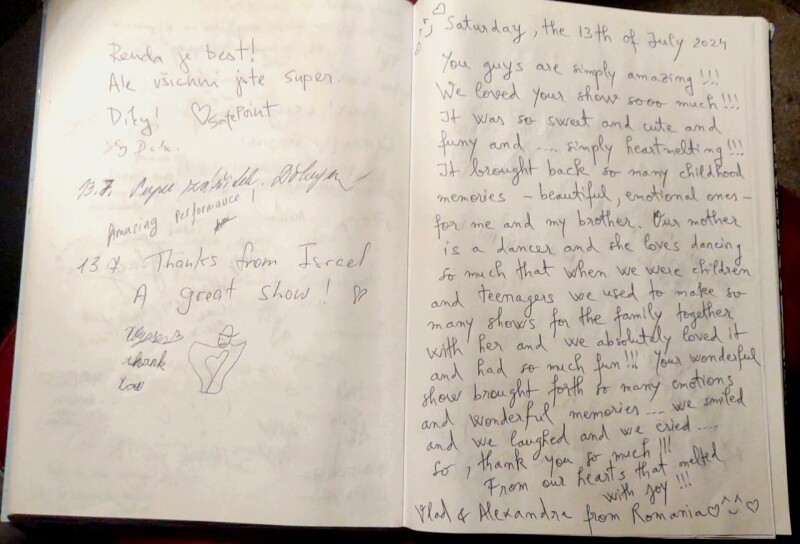 Renda je best!
Ale všichni jste super.
Díky! ♡ SafePoint
13.7. Super zážitek. Děkujeme
Amazing Performance!
13.7 Thanks from Israel
A great show! ♡
thank
Saturday, the 13th of July 2024
You guys are simply amazing!!!
We loved your show sooo much!!!
It was so sweet and cute and
funy and .... simply heartmelting!!!
It brought back so many childhood
memories – beautiful, emotional ones –
for me and my brother. Our mother
is a dancer and she loves dancing
so much that when we were children
and teenagers we used to make so
many shows for the family together
with her and we absolutely loved it
and had so much fun!!! Your wonderful
show brought forth so many emotions
and wonderful memories .... we smiled
and we laughed and we cried ....
so, thank you so much!!!
From our hearts that melted
with joy!!!
Vlad & Alexandra from Romania ♡^‿^♡